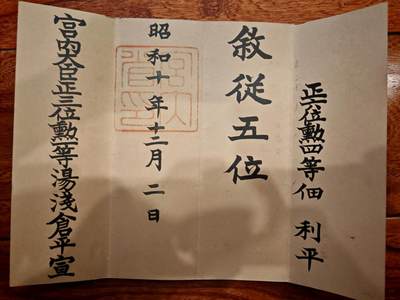 正六位勲四等佃利平
敘從五位
昭和十年十二月二日
宮内大臣正三位勲一等湯淺倉平宣